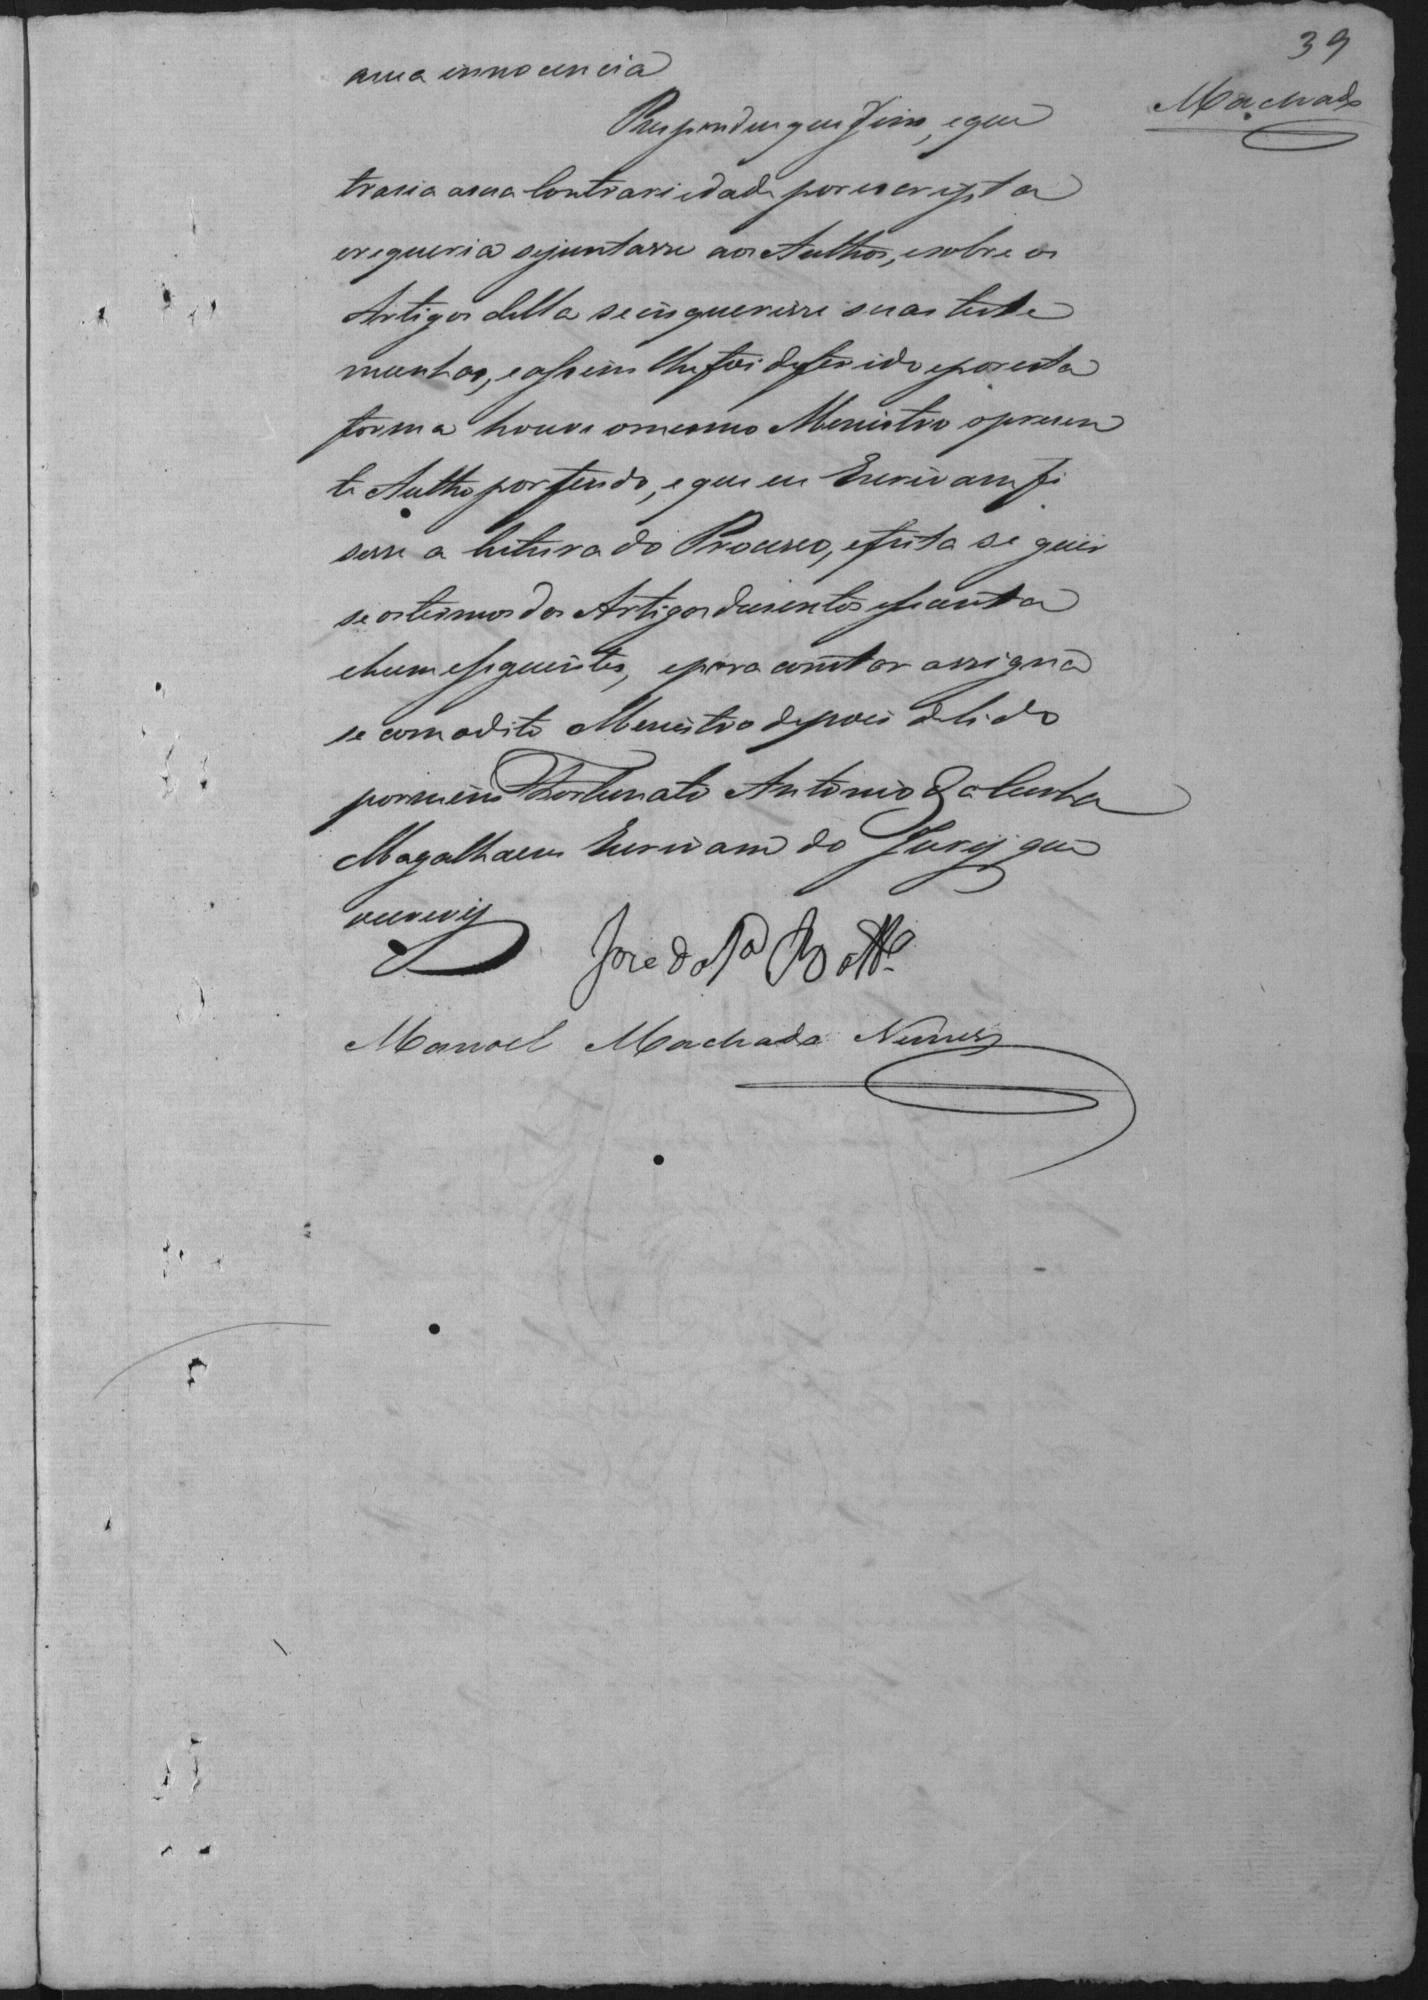 39
Machado
a sua innocencia
Respondeu que Sim, e que
trasia a sua Contrariedade por escripta
e requeria se juntasse aos Authos, e sobre os
Artigos della se inquerisse suas teste
munhas, e assim lhe foi deferido e por esta
forma houve o mesmo Menistro o presen
te Autho por findo, e que eu Escrivam fi
sesse a leitura do Processo, e feita se guis
se os termos dos Artigos dusentos e secenta
e hum e seguintes, e para constar assigna
se com o dito Menistro depois de lido
por mim Fortunato Antonio da Cunha
Magalhaens Escrivam do Jury que
escrevy
Jose da
Manoel Machado Nunes